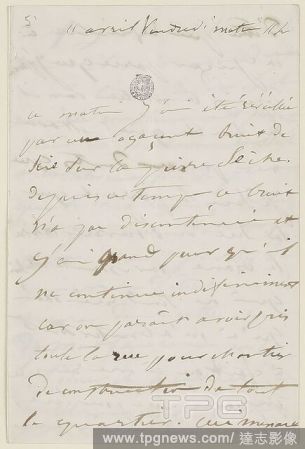 5
11 avril Vendredi matin 11 h
ce matin j'ai été éveillée
par un agaçant bruit de
scie sur la pierre sèche.
depuis ce temps ce bruit
n'a pas discontinué et
j'ai grand peur qu'il
ne continue indéfiniment
car on paraît avoir pris
toute la rue pour chantier
de construction de tout
le quartier.
TPG
www.tpgnews.com/ 達志影像